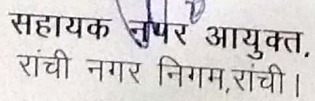 सहायक नगर आयुक्त,
रांची नगर निगम,रांची।